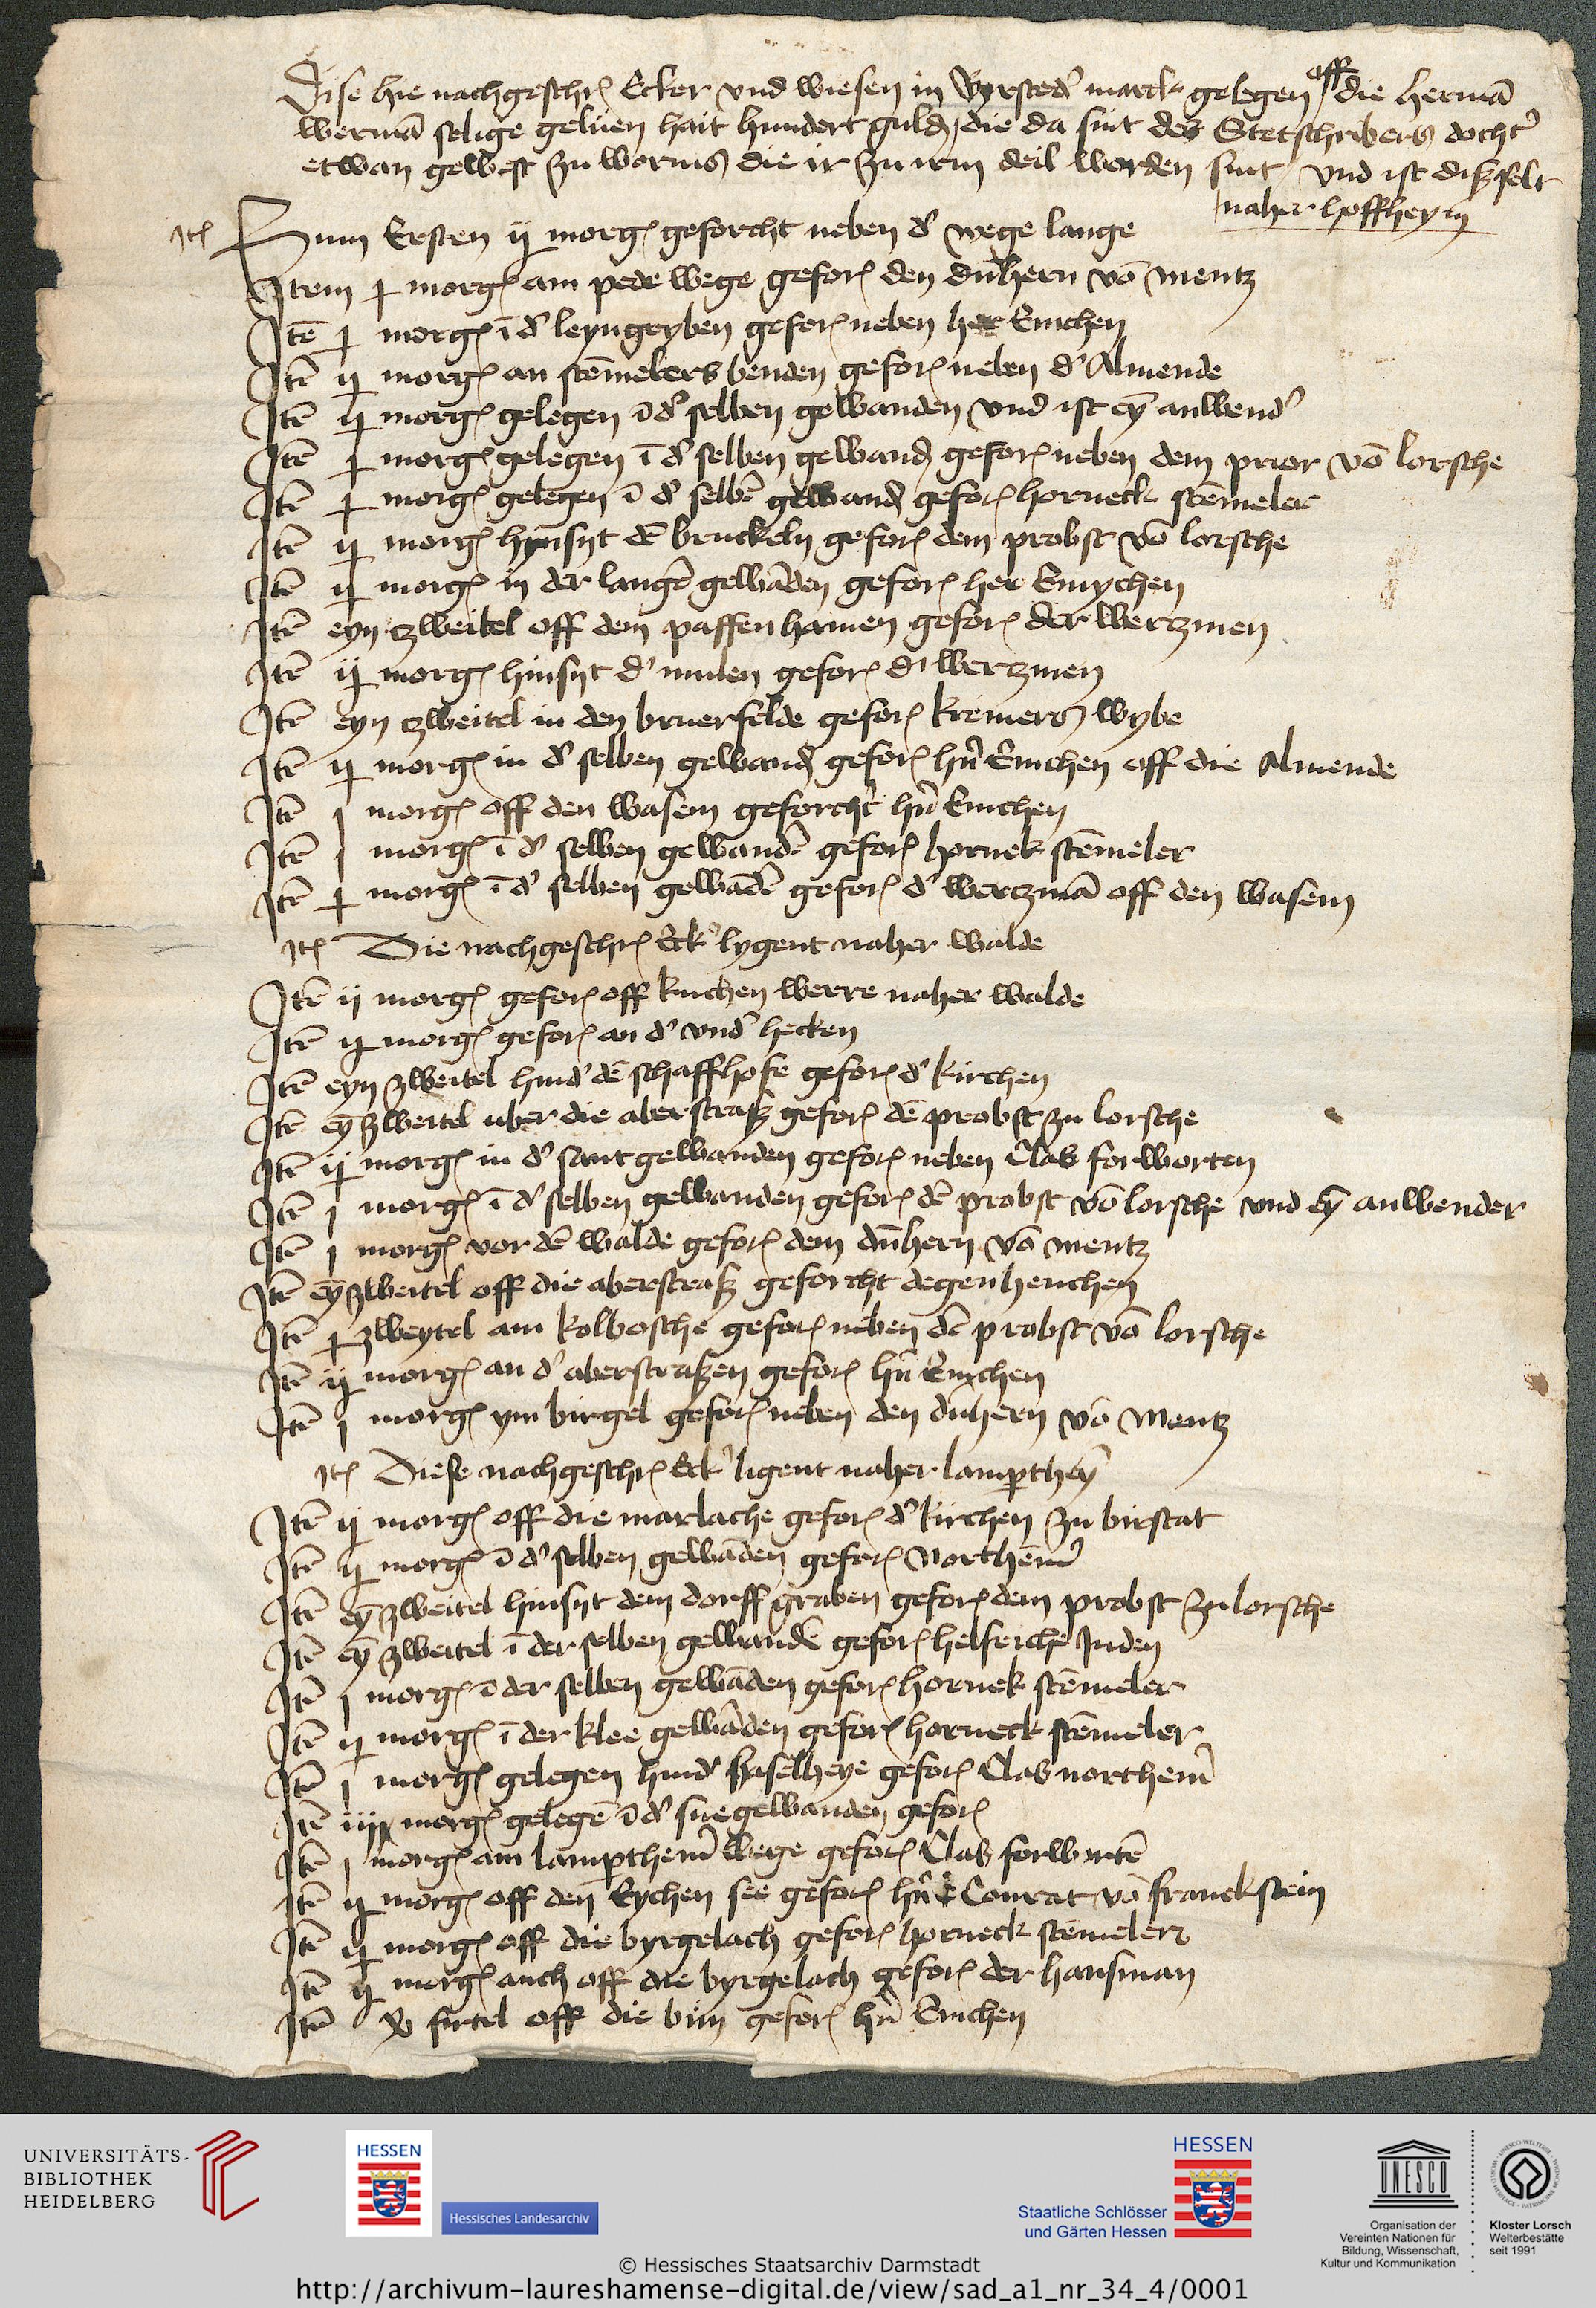 Dise hie nachgeschr Ecker vnd wiesen in Byrsteder marck gelegen off die hermā
wermā selige geluen hait hundert guld die da sint des Stetschribers docht'
etwan gewest zu worms die ir zu irm deil worden sint vnd ist diß felt
naher hoffheym
Itē Zum Ersten ij morg geforcht neben d' wege lange
Item j morg am pede wege gefor den dūhern vō mentz
Itē j morg ī d' leyngryben gefor neben her Emchen
Itē ij morg an stēmelers benden gefor neben d' Almende
Itē ij morg gelegen ī d' selben gewanden vnd ist eȳ anwend'
Itē j morg gelegen ī d' selben gewand gefor neben dem prior vō lorsche
Itē j morg gelegen ī d' selbē gewand gefor horneck stēmeler
Itē ij morg hynsyt dē bruckeln gefor dem probst vō lorsche
Itē ij morg in der langē gewāden gefor her Emychen
Itē eyn zweitel off dem paffen hamen gefor der wertzmen
Itē ij morg hinsyt d' mulen gefor d' wertzmen
Itē eyn zweitel in den bruerfelde gefor kremers wybe
Itē ij morg in d' selben gewand gefor hn̄ Emchen off die Almende
Itē j morg off den wasem geforcht hn̄ Emchen
Itē j morg ī d' selben gewandē gefor hornek stēmeler
Itē j morg ī d' selben gewādē gefor d' wertzmā off den wasem
Itē Die nachgeschr Eck' lygent naher walde
Itē ij morg gefor off kuchen werre naher walde
Itē ij morg gefor an d' vnd' hecken
Itē eyn zweitel hind' dē schaffhofe gefor d' kirchen
Itē eȳ zweitel uber die aberstraß gefor dē probst zu lorsche
Itē ij morg in d' santgewanden gefor neben Clas forworten
Itē j morg ī d' selben gewanden gefor dē probst vō lorsche vnd eȳ anwender
Itē j morg vor dē walde gefor dem dūhern vō mentz
Itē eȳ zweitel off die aberstraß geforcht degenhenchen
Itē j zweytel am kolbosche gefor neben dē probst vō lorsche
Itē ij morg an d' aberstraßen gefor hn̄ Emchen
Itē j morg ym birgel gefor neben den dūhern vō Mentz
Itē Diese nachgeschr Eck' ligent naher lamptheȳ
Itē ij morg off die marlache gefor d' kirchen zu birstat
Itē ij morg ī d' selben gewāden gefor northem'
Itē eȳ zweitel hinsyt dem dorff graben gefor dem probst zu lorsche
Itē eȳ zweitel ī der selben gewandē gefor helferiche Juden
Itē j morg ī der selben gewāden gefor hornek stēmeler
Itē ij morg ī der klee gewāden gefor horneck stēmeler
Itē j morg gelegen hind' haselheye gefor Clas northem'
Itē iiij morg gelegē ī d' snegewanden gefor
Itē j morg am lampthem' wege gefor Clas forwurtē
Itē ij morg off den Eychen see gefor hn̄ Conrat vō franckstein
Itē ij morg off die byrgelach gefor horneck stēmelers
Itē ij morg auch off die byrgelach gefor der hansman
Itē v firtel off die bun gefor hn̄ Emchen
UNIVERSITÄTS-
BIBLIOTHEK
HEIDELBERG
HESSEN
Hessisches Landesarchiv
HESSEN
Staatliche Schlösser
und Gärten Hessen
UNESCO
Organisation der
Vereinten Nationen für
Bildung, Wissenschaft,
Kultur und Kommunikation
Kloster Lorsch
Welterbestätte
seit 1991
© Hessisches Staatsarchiv Darmstadt
http://archivum-laureshamense-digital.de/view/sad_a1_nr_34_4/0001